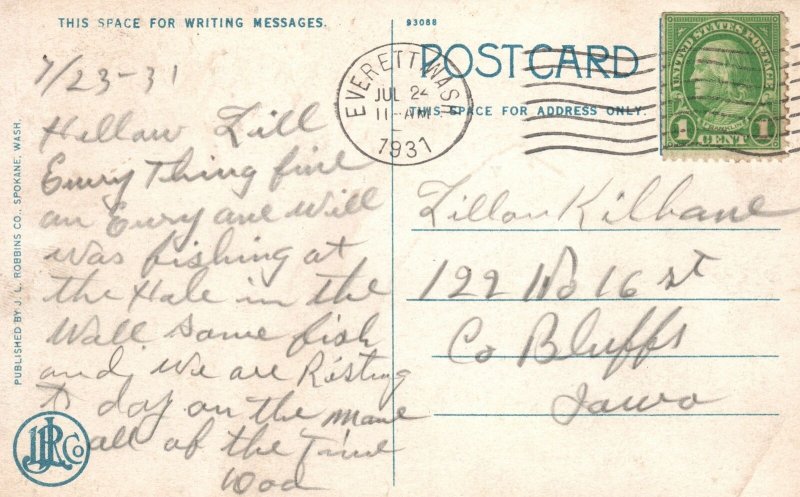 THIS SPACE FOR WRITING MESSAGES.
93088
POSTCARD
THIS SPACE FOR ADDRESS ONLY.
UNITED STATES POSTAGE
1 CENT 1
EVERETT WASH.
JUL 24
11-AM
1931
7/23-31
Hellow Lill
Evury Thing fine
an Evury ane Will
Was fishing at
the Hole in the
Wall Some fish
and, We are Risting
to day on the mane
all of the Time
Dod
Lillon Kilbane
122 No 16 st
Co Bluffs
Iowa
PUBLISHED BY J. L. ROBBINS CO., SPOKANE, WASH.
JLR Co